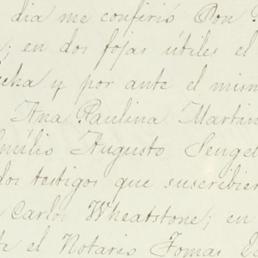 dia me confirió Don
; en dos fojas útiles el
cha y por ante el mism
Ana Paulina Martin
milio Augusto Senge
dos testigos que suscribier
Carlos Wheatstone; en
te el Notario Tomas